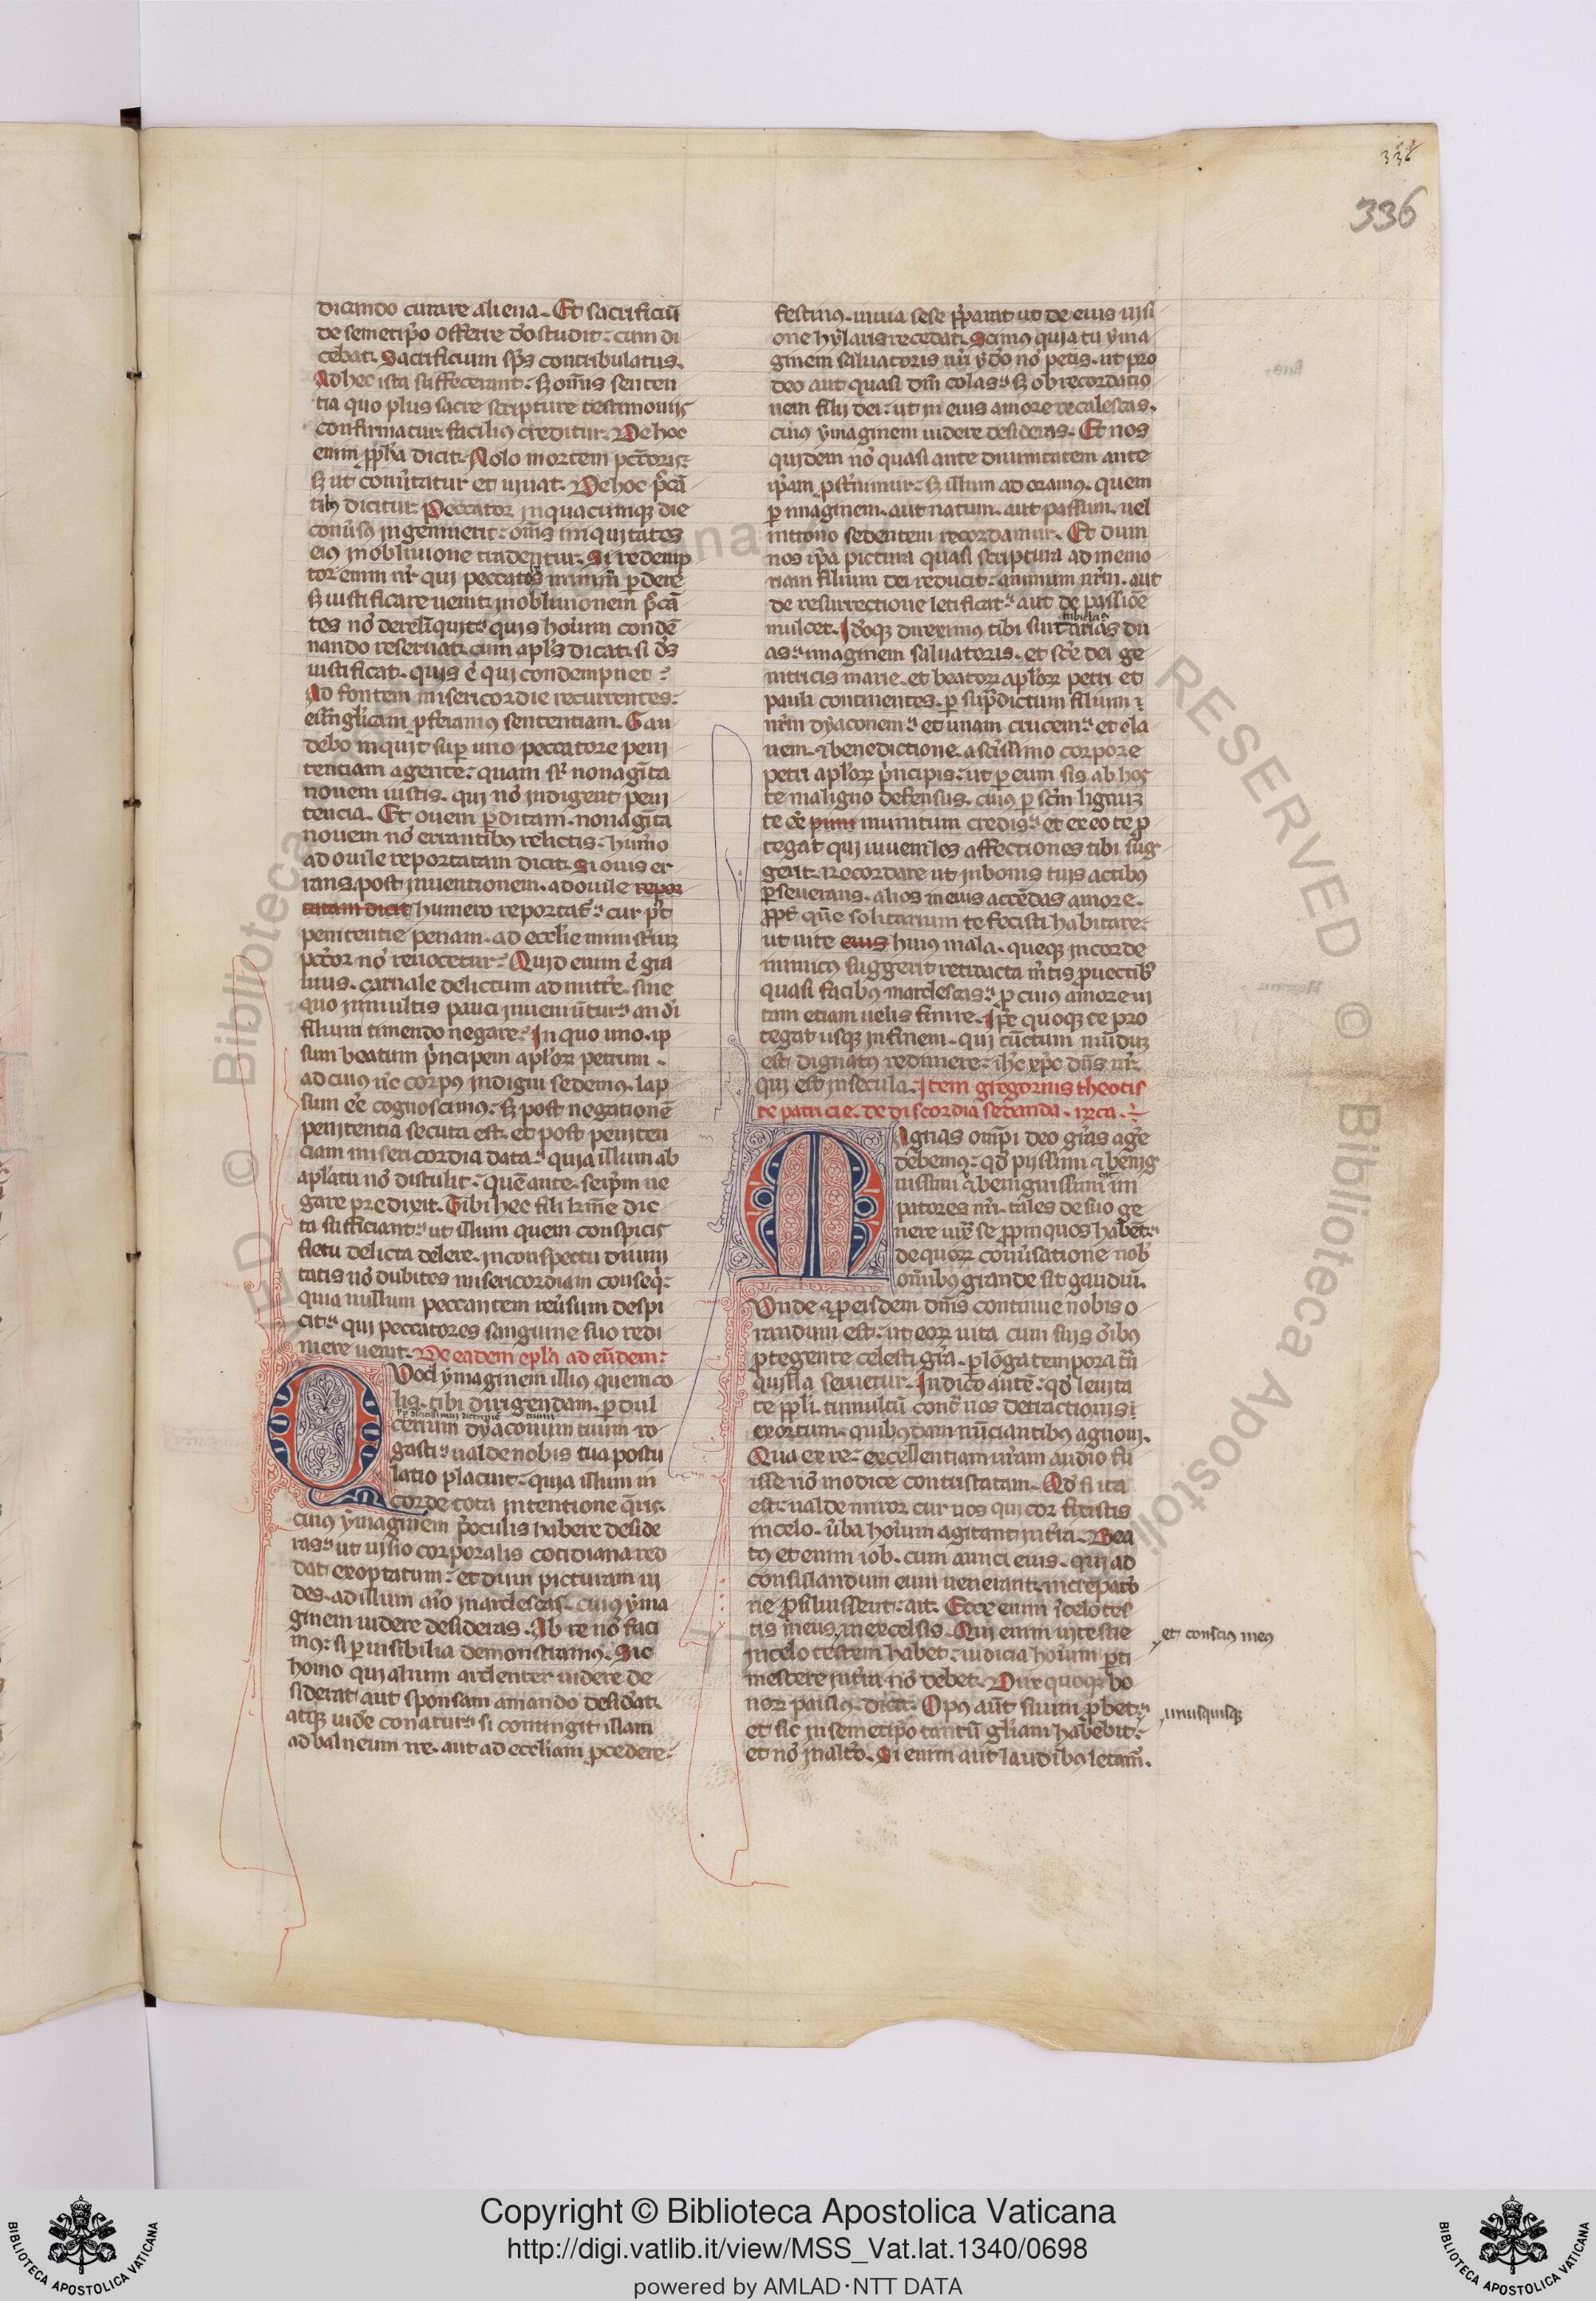 336
336
dicando curare aliena. Et sacrificiū
de semetip̄o offerre d̄o studuit. cum di
cebat. Sacrificium sp̄s contribulatus.
Ad hec ista suffecerant. sꝫ om̄is senten
tia quo plus sacre scripture testimoniis
confirmatur. facilius creditur. De hoc
enim ꝓph̄a dicit. Nolo mortem pctōris.
sꝫ ut conv̄tatur et uiuat. De hoc p̄cā
tibꝫ dicitur. Peccator in quacumqꝫ die
conūsꝰ ingemuerit. om̄s iniquitates
eiꝰ in obliuione tradentur. Si redemp
tor enim nr̄ qui peccatores minim̄ ꝑdere
sꝫ iustificare uenit. in obliuionem p̄cā
tes nō derelīquit. quis hoīum condē
nando reseruat. cum apl̄s dicat. si d̄s
iustificat. quis ē qui condempnet.
Ad fontem misericordie recurrentes.
euāngl̄icam ꝓferamus sententiam. Gau
debo inquit sup̄ uno peccatore peni
tentiam agente. quam sr̄ nonagīta
nouem iustis. qui nō indigent peni
tencia. Et ouem ꝑditam. nonagīta
nouem nō errantibꝰ relictis. hum̄o
ad ouile reportatam dicit. Si ouis er
rans. post inuentionem. ad ouile repor
tatam dicit humero reportat̄. cur p̄t
penitentie penam. ad eccl̄ie ministr̄iuꝫ
pctōr nō reuocetur. Quid enim ē gra
uius. carnale delictum admittr̄e. sine
quo in multis pauci inueniūtur. an d̄i
filium timendo negare. In quo uno. ip
sum beatum p̄ncipem aplōꝝ petrum.
ad cuiꝰ nc̄ corpꝰ indigni sedemꝰ. lap
sum eē cognoscimꝰ. sꝫ post negationē
penitentia secuta est. et post peniten
ciam misericordia data. quia illum ab
apl̄atu nō distulit. quē ante. seip̄m ne
gare predixit. Tibi hec fili kr̄me dic
ta sufficiant. ut illum quem conspicis
fletu delicta delere. in conspectu diuini
tatis nō dubites misericordiam conseq̄.
quia nullum peccantem reūsum despi
cit. qui peccatores sanguine suo redi
mere uenit. De eadem epl̄a ad eūdem.
Quod ymaginem illius quem co
lis. tibi dirigendam. ꝑ dul
cerium dyaconum tuum ro
gasti. ualde nobis tua postu
latio placuit. quia illum in
corde tota intentione q̄ris.
cuius ymaginem p̄ oculis habere deside
ras. ut uisio corporalis cotidiana red
dat exoptatum. et dum picturam ui
des. ad illum aīo inardescas. cuiꝰ yma
ginem uidere desideras. Ab re nō faci
mꝰ. si ꝑ uisibilia demonstramꝰ. Sic
homo qui alium ardenter uidere de
siderat aut sponsam amando desid̄at.
atqꝫ uid̄e conatur. si contingit illam
ad balneum ire. aut ad eccl̄iam ꝓcedere.
festinꝰ. in uia sese p̄parat ut de eius uisi
one hylaris recedat. Scimꝰ quia tu yma
ginem saluatoris nr̄i yd̄o nō petis. ut pro
deo aut quasi dm̄ colas. sꝫ ob recordatio
nem filii dei. ut in eius amore recalescas.
cuius ymaginem uidere desideras. Et nos
quidem nō quasi ante diuinitatem ante
ip̄am ꝓst̄nimur. sꝫ illum adoramꝰ. quem
ꝑ imaginem. aut natum. aut passum. uel
in trono sedentem recordamur. Et dum
nos ip̄a pictura quasi scriptura ad memo
riam filium dei reducit. animum nr̄m. aut
de resurrectione letificat. aut de passiōe
mulcet. Idoqꝫ direximꝰ tibi surtarias du
as. imaginem saluatoris. et sc̄e dei ge
nitricis marie. et beatoꝝ aplōꝝ petri et
pauli continentes. ꝑ sup̄dictum filium
nr̄m dyaconem. et unam crucem. et cla
uem. & benedictione. a sc̄issimo corpore
petri aplōꝝ p̄ncipis. ut ꝑ eum sis ab hos
te maligno defensus. cuiꝰ ꝑ sc̄m lignuꝫ
te eē munitum credis. et ex eo te ꝓ
tegat qui iuueniles affectiones tibi sug
gerit. & recordare ut in bonis tuis actibꝰ
ꝑseuerans. alios in eius accēdas amore.
ꝓpt̄ quē solitarium te fecisti habitare.
ut uite eius huiꝰ mala. queqꝫ in corde
inimicꝰ suggerit retracta m̄tis ꝓuectibꝰ
quasi facibꝰ inardescas. p̄ cuius amore ui
tam etiam uelis finire. Ip̄e quoqꝫ te pro
tegat usqꝫ in finem. qui cūctum mūduꝫ
est dignatꝰ redimere. ih̄c xp̄c dn̄s nr̄.
qui est in secula. Item gregorius theotis
te patricie. de discordia sedanda.
Magnas om̄pi deo gr̄as aḡe
debemꝰ. qd̄ piissimi & benig
nissimi & benignissimi im
patores nr̄i. tales de suo ge
nere iux̄ se ꝓpinquos habēt.
de quoꝝ conūsatione nob̄
om̄ibꝰ grande sit gaudiū.
Unde & ꝓ eisdem dn̄is continue nobis o
randum est. ut eoꝝ uita cum suis oībꝰ
ꝓtegente celesti gr̄a. ꝑ lōga tempora tr̄n
quilla seruetur. Indico autē. qd̄ leuita
te ppl̄i. tumultū cont̄ uos detractionis
exortum. quibꝰdam nūciantibꝰ agnoui.
Qua ex re. excellentiam ur̄am audio fu
isse nō modice contristatam. Qd̄ si ita
est. ualde miror cur uos qui cor fixistis
in celo. ūba hoīum agitant in tr̄a. Bea
tꝰ etenim iob. cum amici eius. qui ad
consolandum eum uenerant. increpato
ne ꝓsiluissent. ait. Ecce enim ī celo tes
tis meus, in excelsis. Qui enim uite sue
in celo testem habet. iudicia hoīum ꝑti
mescere in tr̄a nō debet. Dux quoqꝫ bo
noꝝ paulꝰ. dicit. Opꝰ aūt suum ꝓbet.
et sic in semetip̄o tantū gl̄iam habebit.
et nō in alt̄o. Si enim aut laudibꝰ letam̄.
et consciꝰ meꝰ
unusquisqꝫ
© Biblioteca Apostolica Vaticana
RESERVED
Copyright © Biblioteca Apostolica Vaticana
http://digi.vatlib.it/view/MSS_Vat.lat.1340/0698
powered by AMLAD·NTT DATA
BIBLIOTECA APOSTOLICA VATICANA
BIBLIOTECA APOSTOLICA VATICANA